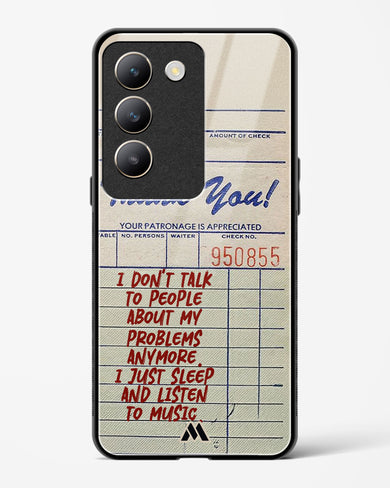 AMOUNT OF CHECK
You!
YOUR PATRONAGE IS APPRECIATED
ABLE NO. PERSONS WAITER CHECK NO.
950855
I DON'T TALK
TO PEOPLE
ABOUT MY
PROBLEMS
ANYMORE.
I JUST SLEEP
AND LISTEN
TO MUSIC